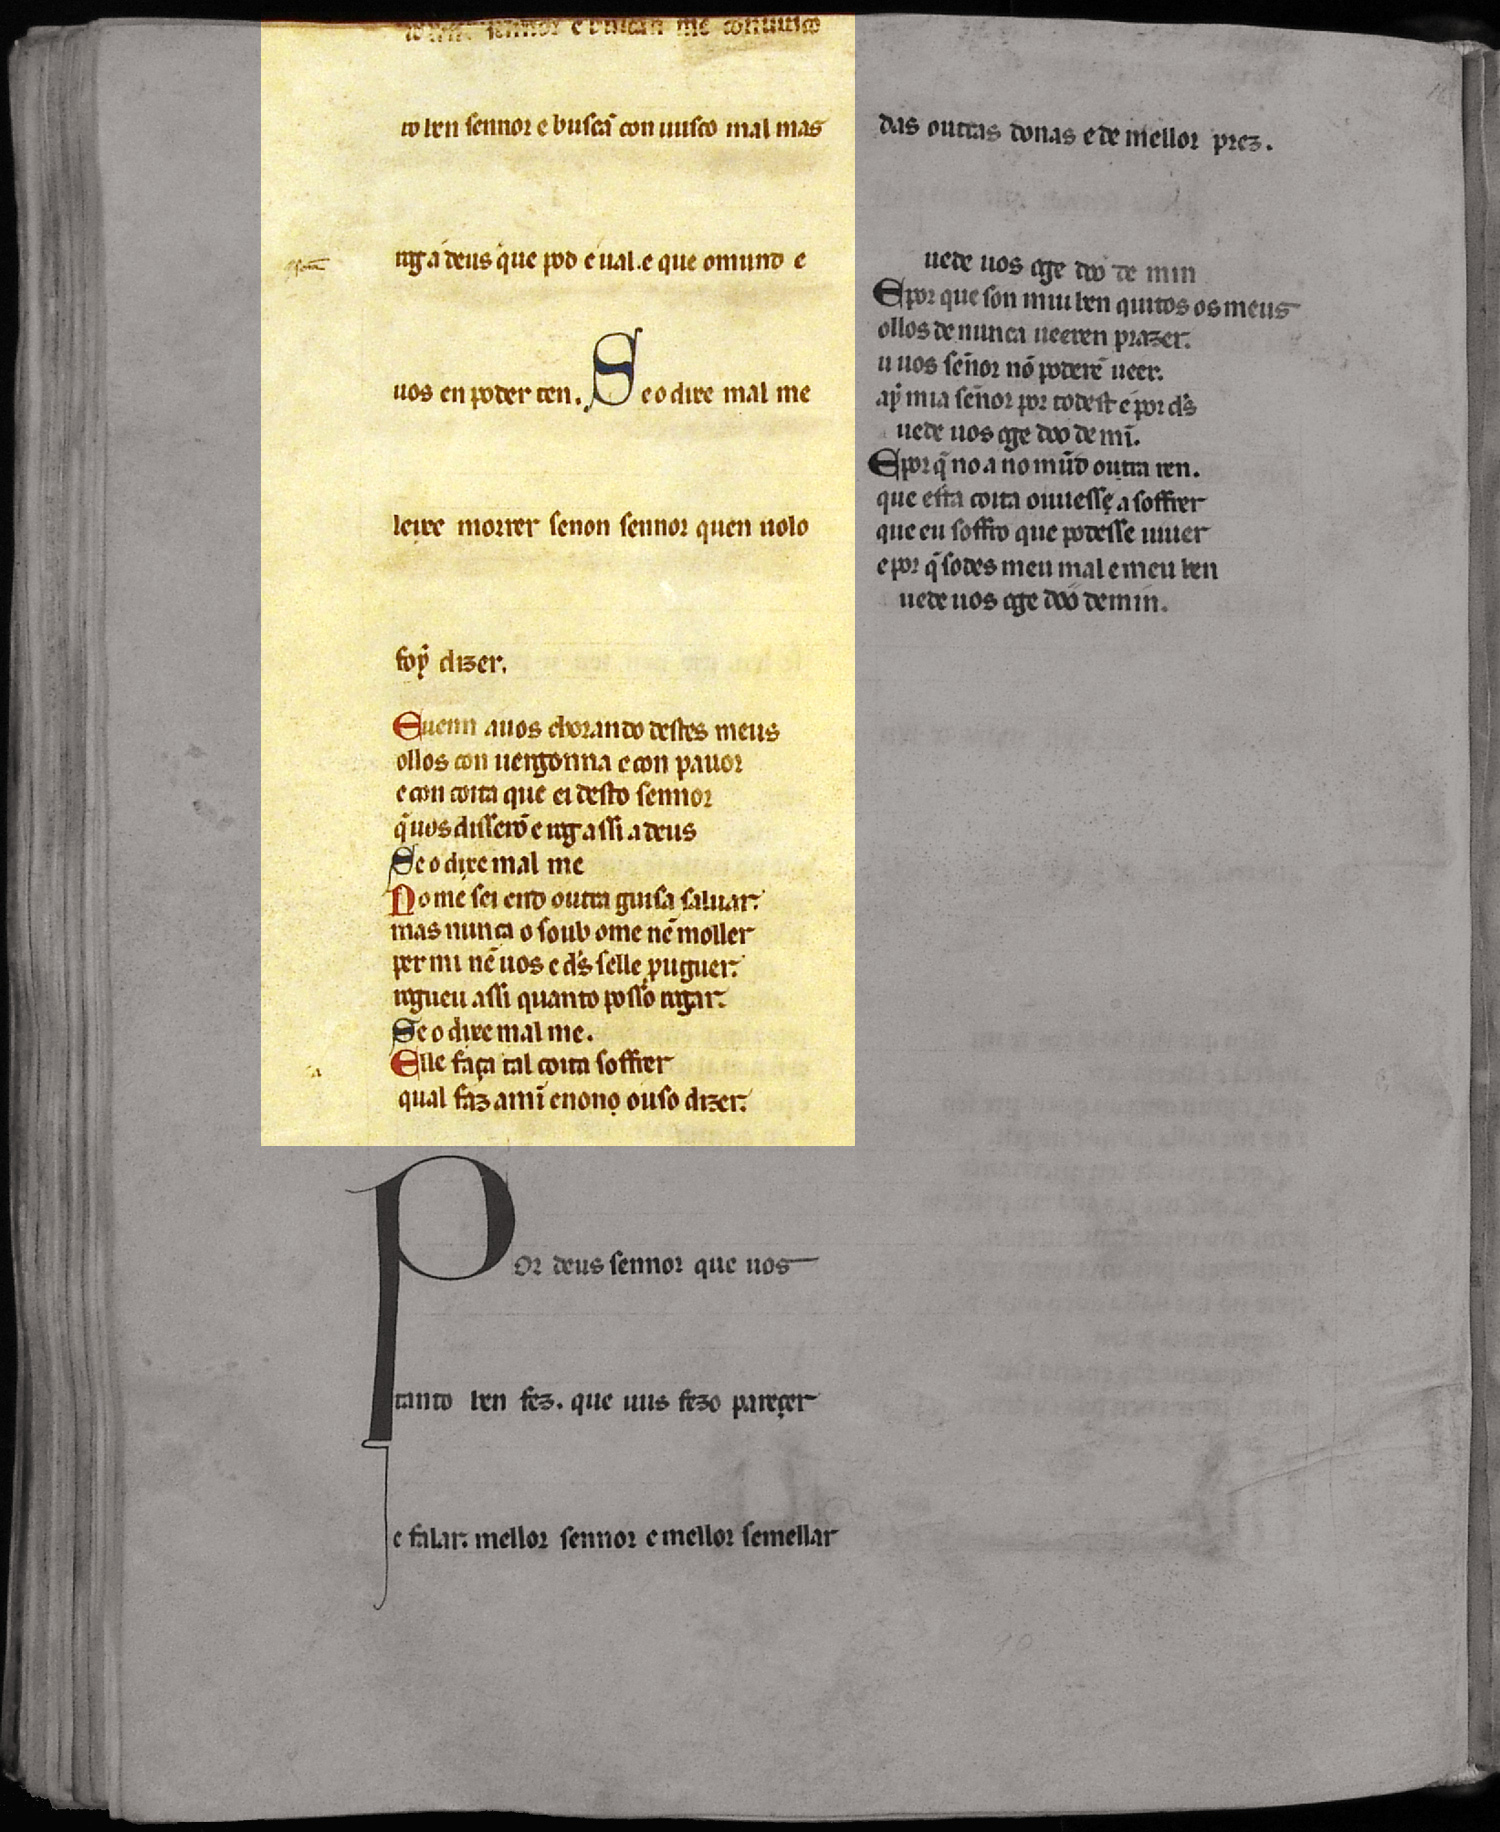 sennor e buscan me conuusco
to ben sennor e buscã con uusco mal mas
rog a deus que pod e ual. e que o mund e
uos en poder ten. Se o dixe mal me
leixe morrer senon sennor quen uolo
foỹ dizer.
E uenn a uos chorando destes meus
ollos con uergonna e con pauor
e con coita que ei desto sennor
q̃ uos disserõ e rog assi a deus
Se o dixe mal me
No me sei end outra guisa saluar.
mas nunca o soub ome nẽ moller
per mi nẽ uos e d̃s selle puguer.
rogueu assi quanto posso rogar.
Se o dixe mal me.
Elle faça tal coita soffrer
qual faz a mĩ e nono ouso dizer.
Por deus sennor que uos
tanto ben fez. que uus fezo pareçer
e falar. mellor sennor e mellor semellar
das outras donas e de mellor prez.
uede uos q̃ge doo de min
E por que son mui ben quitos os meus
ollos de nunca ueeren prazer.
u uos señor nõ poderẽ ueer.
aỹ mia señor por tod est e por d̃s
uede uos q̃ge doo de mĩ.
E por q̃ no a no mũdo outra ren.
que esta coita ouuesse a soffrer
que eu soffro que podesse uiuer
e por q̃ sodes meu mal e meu ben
uede uos q̃ge doo de min.